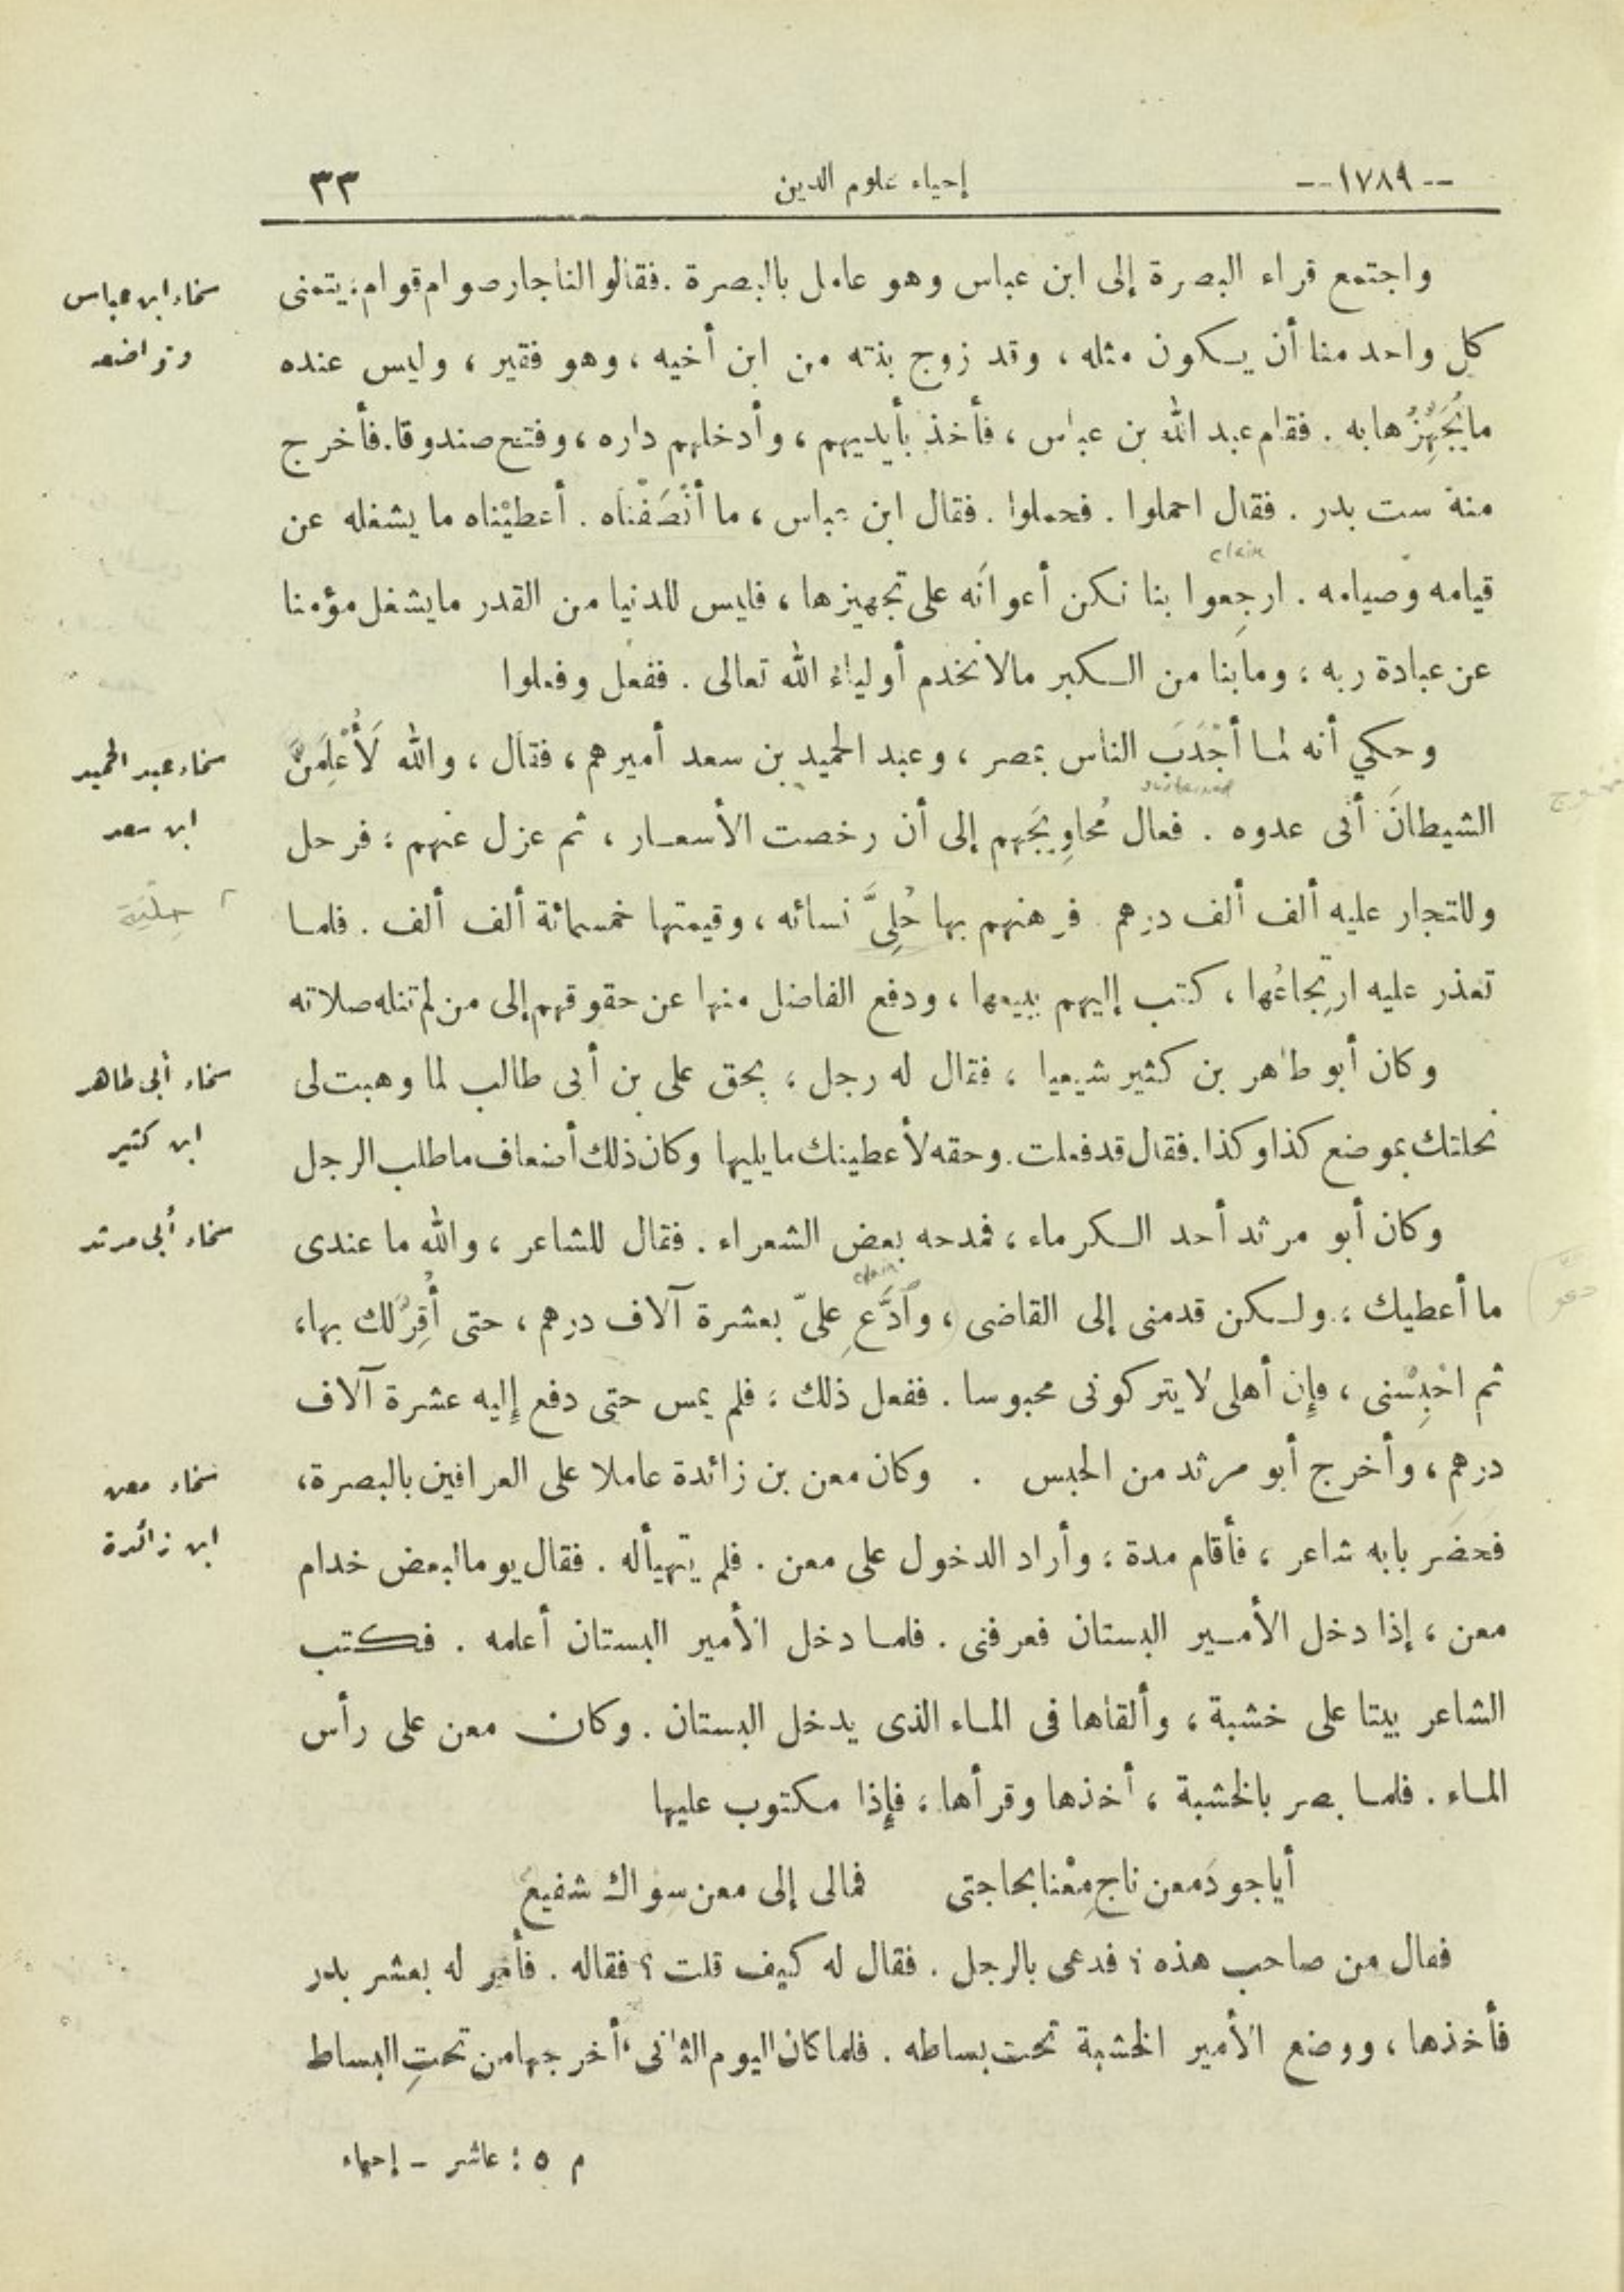 --١٧٨٩--
إحياء علوم الدين
٣٣
واجتمع قراء البصرة إلى ابن عباس وهو عامل بالبصرة . فقالوا لنا جار صوام قوام ؛ يتمنى
كل واحد منا أن يكون مثله ، وقد زوج بنته من ابن أخيه ، وهو فقير ، وليس عنده
ما يُجَهِّزُها به . فقام عبد الله بن عباس ، فأخذ بأيديهم ، وأدخلهم داره ، وفتح صندوقا . فأخرج
منه ست بدر . فقال احملوا . فحملوا . فقال ابن عباس ، ما أنْصَفْناه . أعطيْناه ما يشغله عن
قيامه وصيامه . ارجِعوا بنا نكن أعوانَه على تجهيزها ، فليس للدنيا من القدر ما يشغل مؤمنا
عن عبادة ربه ؛ وما بنا من الكبر مالا نخدم أولياء الله تعالى . ففعل وفعلوا
وحكي أنه لما أجْدَبَ الناس بمصر ، وعبد الحميد بن سعد أميرهم ، فقال ، والله لَأُعْلِمَنَّ
الشيطانَ أنى عدوه . فعال مُحاوِيَجَهم إلى أن رخصت الأسعار ، ثم عزل عنهم ؛ فرحل
وللتجار عليه ألف ألف درهم . فرهنهم بها حُلِىَّ نسائه ، وقيمتها خمسمائة ألف ألف . فلما
تعذر عليه ارتِجاعُها ، كتب إليهم ببيعها ، ودفع الفاضل منها عن حقوقهم إلى من لم تنله صلاته
وكان أبو طاهر بن كثير شيعيا ، فقال له رجل ؛ بحق على بن أبى طالب لما وهبت لى
نخلتك بموضع كذا وكذا . فقال قد فعلت . وحقه لأعطينك ما يليها وكان ذلك أضعاف ما طلب الرجل
وكان أبو مرثد أحد الكرماء ، فمدحه بعض الشعراء . فقال للشاعر ، والله ما عندى
ما أعطيك ؛ ولكن قدمنى إلى القاضى ، وٱدَّعِ علىّ بعشرة آلاف درهم ، حتى أُقِرَّ لك بها ،
ثم احْبِسْنى ، فإن أهلى لا يتركونى محبوسا . ففعل ذلك ؛ فلم يمس حتى دفع إليه عشرة آلاف
درهم ، وأخرج أبو مرثد من الحبس . وكان معن بن زائدة عاملا على العراقين بالبصرة ،
فحضر بابه شاعر ، فأقام مدة ؛ وأراد الدخول على معن . فلم يتهيأ له . فقال يوما لبعض خدام
معن ، إذا دخل الأمير البستان فعرفنى . فلما دخل الأمير البستان أعلمه . فكتب
الشاعر بيتا على خشبة ، وألقاها فى الماء الذى يدخل البستان . وكان معن على رأس
الماء . فلما بصر بالخشبة ، أخذها وقرأها ؛ فإذا مكتوب عليها
أيا جودَ معن ناجِ معْنا بحاجتى فمالى إلى معن سواك شفيع
فقال من صاحب هذه ؟ فدعى بالرجل . فقال له كيف قلت ؟ فقاله . فأمر له بعشر بدر
فأخذها ، ووضع الأمير الخشبة تحت بساطه . فلما كان اليوم الثانى ، أخرجها من تحتِ البساط
م ٥ : عاشر - إحياء
سخاء ابن عباس
وتواضعه
سخاء عبد الحميد
ابن سعد
حِلْيَة
سخاء أبى طاهر
ابن كثير
سخاء أبى مرثد
سخاء معن
ابن زائدة
claim
sustained
claim